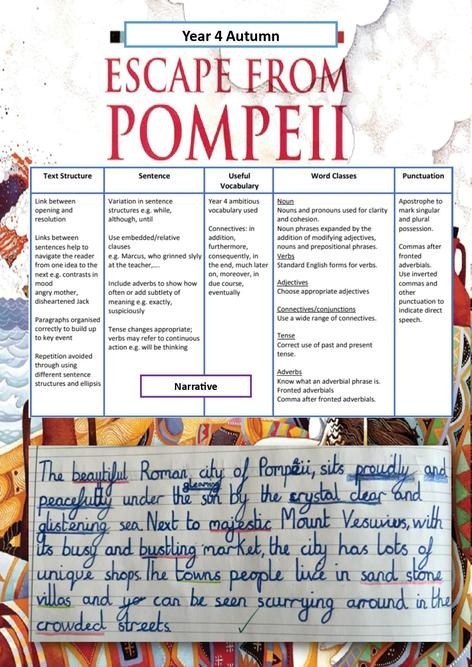 Year 4 Autumn
ESCAPE FROM
POMPEII
Text Structure
Link between
opening and
resolution
Links between
sentences help to
navigate the reader
from one idea to the
next e.g. contrasts in
mood
angry mother,
disheartened Jack
Paragraphs organised
correctly to build up
to key event
Repetition avoided
through using
different sentence
structures and ellipsis
Sentence
Variation in sentence
structures e.g. while,
although, until
Use embedded/relative
clauses
e.g. Marcus, who grinned slyly
at the teacher,....
Include adverbs to show how
often or add subtlety of
meaning e.g. exactly,
suspiciously
Tense changes appropriate;
verbs may refer to continuous
action e.g. will be thinking
Useful
Vocabulary
Year 4 ambitious
vocabulary used
Connectives: in
addition,
furthermore,
consequently, in
the end, much later
on, moreover, in
due course,
eventually
Word Classes
Noun
Nouns and pronouns used for clarity
and cohesion.
Noun phrases expanded by the
addition of modifying adjectives,
nouns and prepositional phrases.
Verbs
Standard English forms for verbs.
Adjectives
Choose appropriate adjectives
Connectives/conjunctions
Use a wide range of connectives.
Tense
Correct use of past and present
tense.
Adverbs
Know what an adverbial phrase is.
Fronted adverbials
Comma after fronted adverbials.
Punctuation
Apostrophe to
mark singular
and plural
possession.
Commas after
fronted
adverbials.
Use inverted
commas and
other
punctuation to
indicate direct
speech.
Narrative
The beautiful Roman city of Pompeii, sits proudly and
gleaming
peacefully under the sun by the crystal clear and
glistening sea. Next to majestic Mount Vesuvius, with
its busy and bustling market, the city has lots of
unique shops. The towns people live in sand stone
villas and can be seen scurrying arround in the
crowded streets.